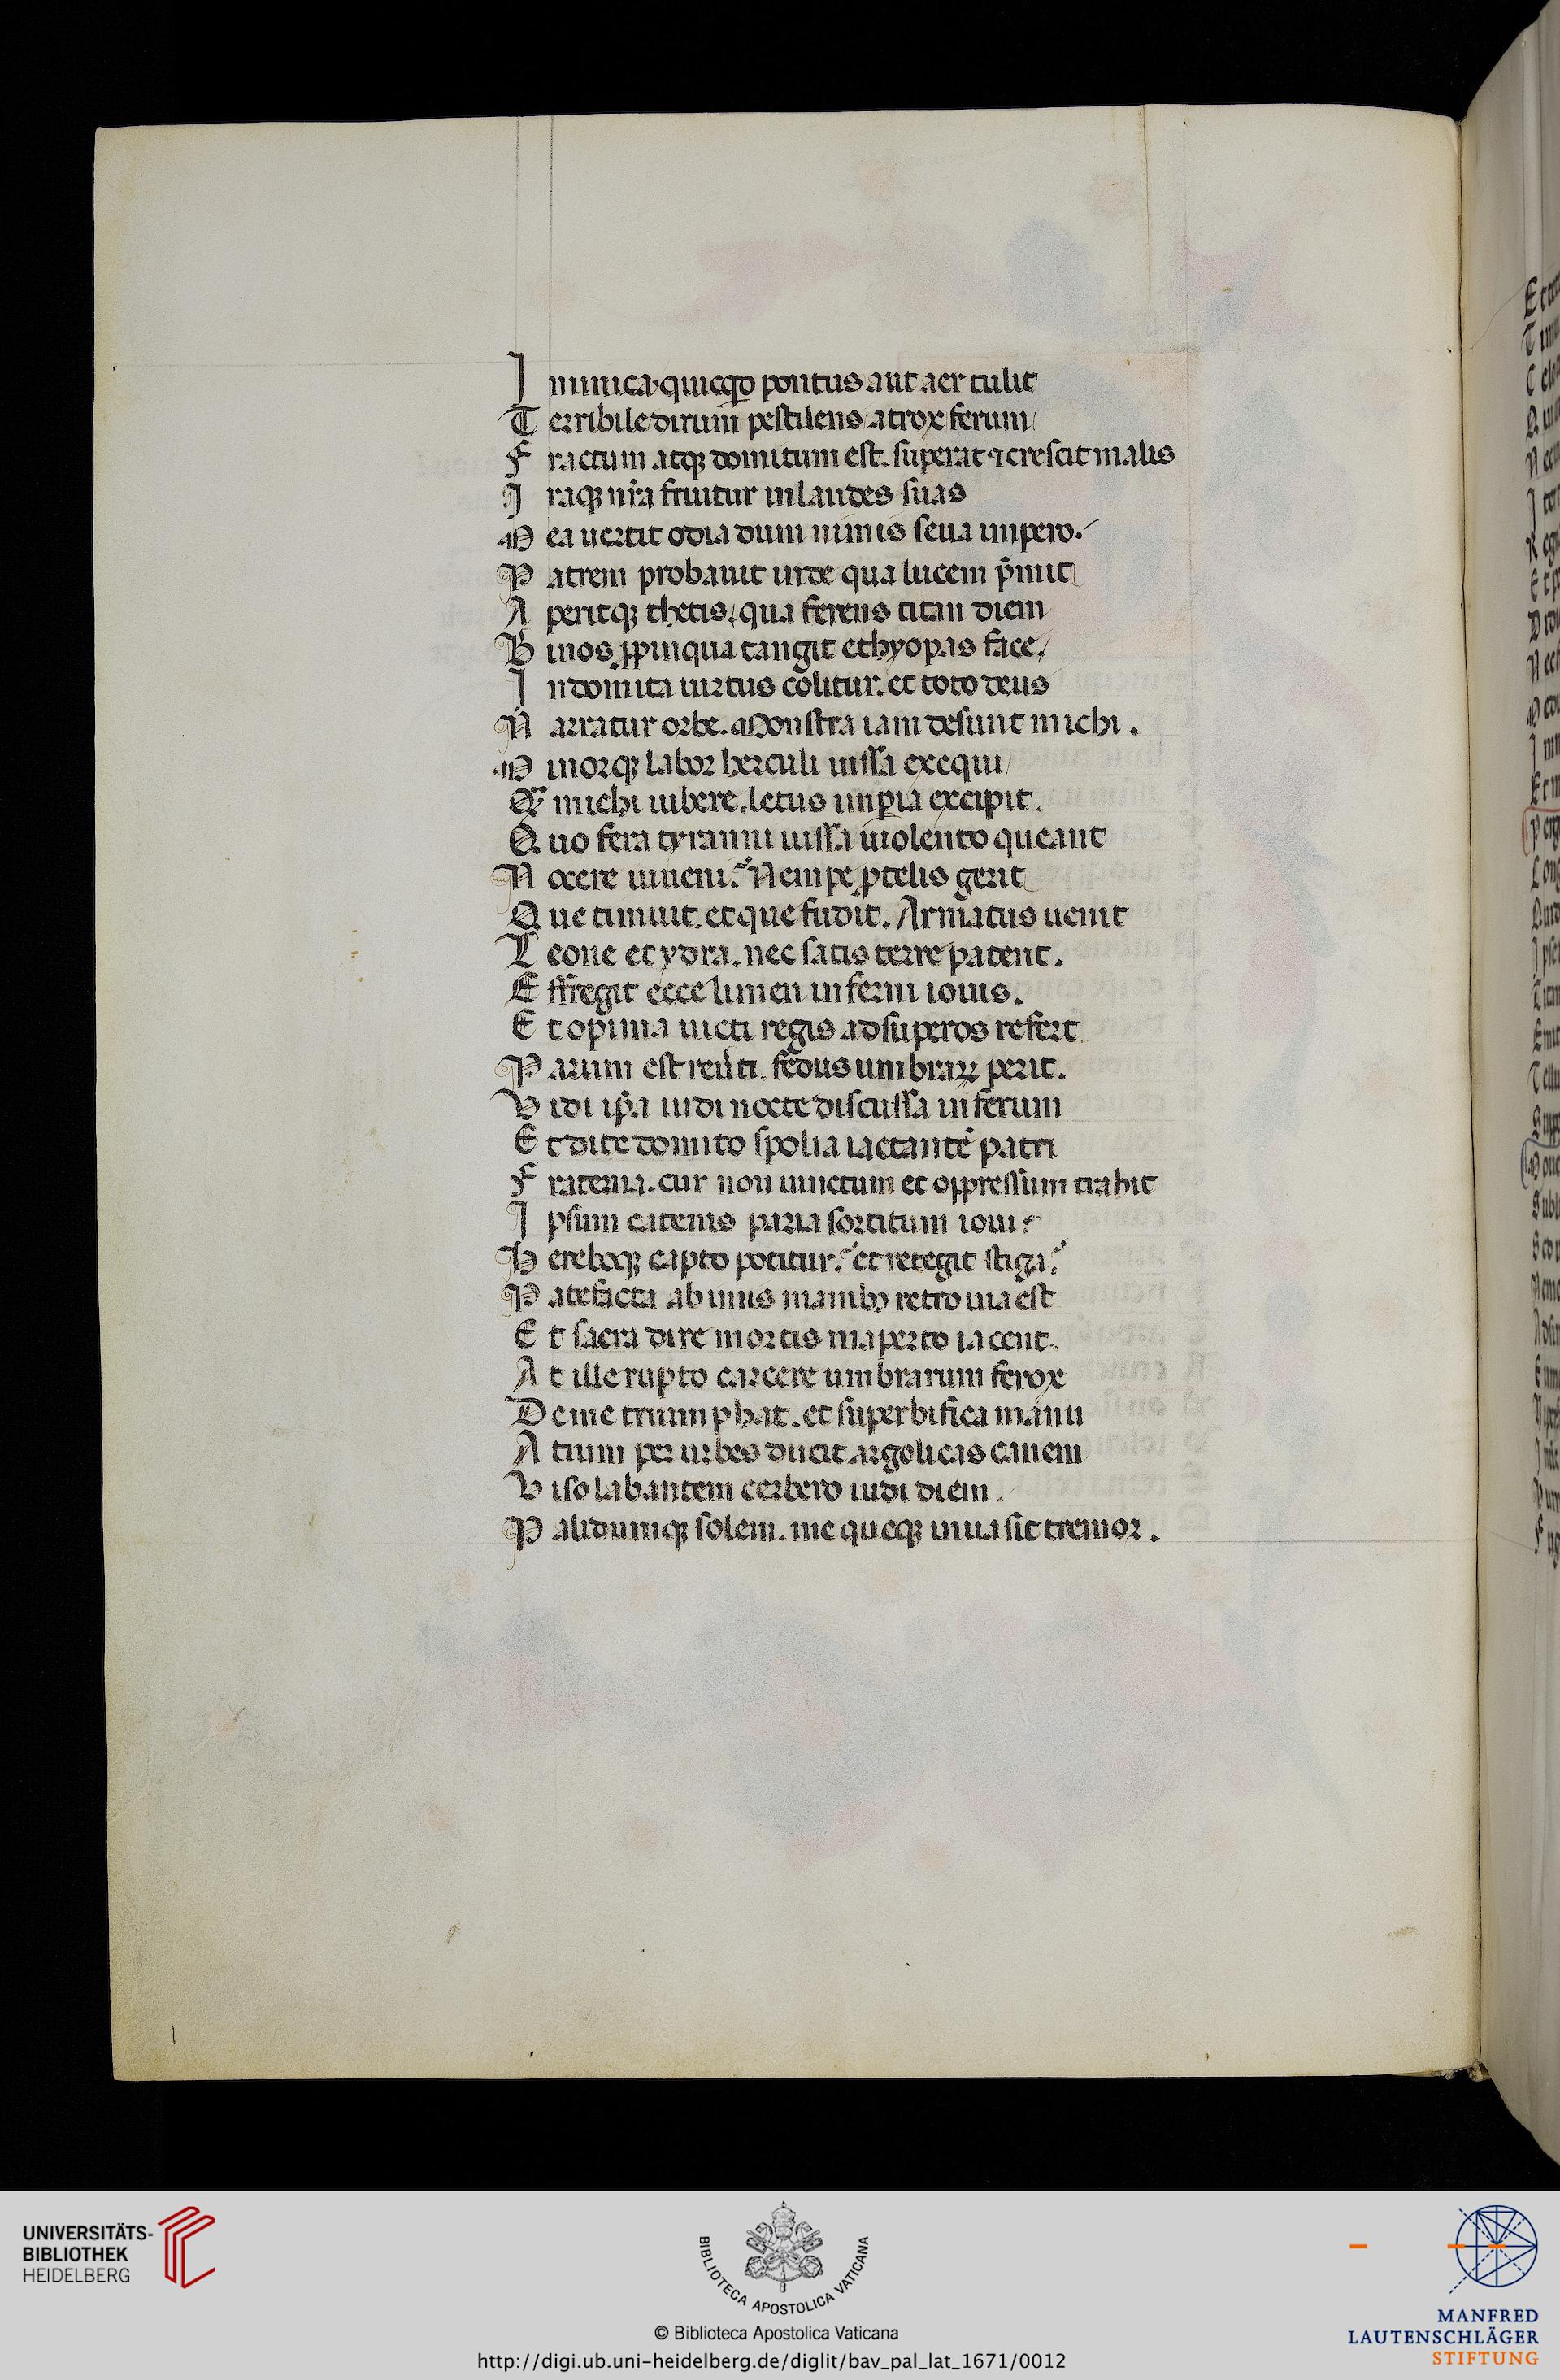 I nimica. quicqd pontus aut aer tulit
T erribile dirum pestilens atrox ferum
F ractum atqꝫ domitum est. superat ⁊ crescit malis
I raqꝫ nr̄a fruitur in laudes suas
M ea uertit odia dum nimis seua impero.
P atrem probauit inde qua lucem p̄mit
A peritqꝫ thetis. qua ferens titan diem
B inos ꝓpinqua tangit ethyopas face.
I ndomita uirtus colitur. et toto deus
N arratur orbe. Monstra iam desunt michi.
M inorqꝫ labor herculi iussa exequi
Qᵃ michi iubere. letus imꝑia excipit.
Q uo fera tyranni iussa uiolento queant
N ocere iuueni. Nempe ꝓ telis gerit
Q ue timuit. et que fudit. Armatus uenit
L eone et ydra. nec satis terre patent.
E ffregit ecce limen inferni iouis.
E t opima uicti regis ad superos refert
P arum est reūti. fedus umbraꝝ perit.
V idi ip̄a uidi nocte discussa inferum
E t dite domito spolia iactantē patri
F raterna. cur non uinctum et oppressum trahit
I psum catenis paria sortitum ioui
H ereboqꝫ capto potitur. et retegit stiga.
P atefacta ab imis manibꝫ retro uia est
E t sacra dire mortis in aperto iacent.
A t ille rupto carcere umbrarum ferox
D e me triumphat. et superbifica manu
A trum per urbes ducit argolicas canem
V iso labantem cerbero uidi diem.
P alidumqꝫ solem. me queqꝫ inuasit tremor.
UNIVERSITÄTS-
BIBLIOTHEK
HEIDELBERG
BIBLIOTECA APOSTOLICA VATICANA
MANFRED
LAUTENSCHLÄGER
STIFTUNG
© Biblioteca Apostolica Vaticana
http://digi.ub.uni-heidelberg.de/diglit/bav_pal_lat_1671/0012